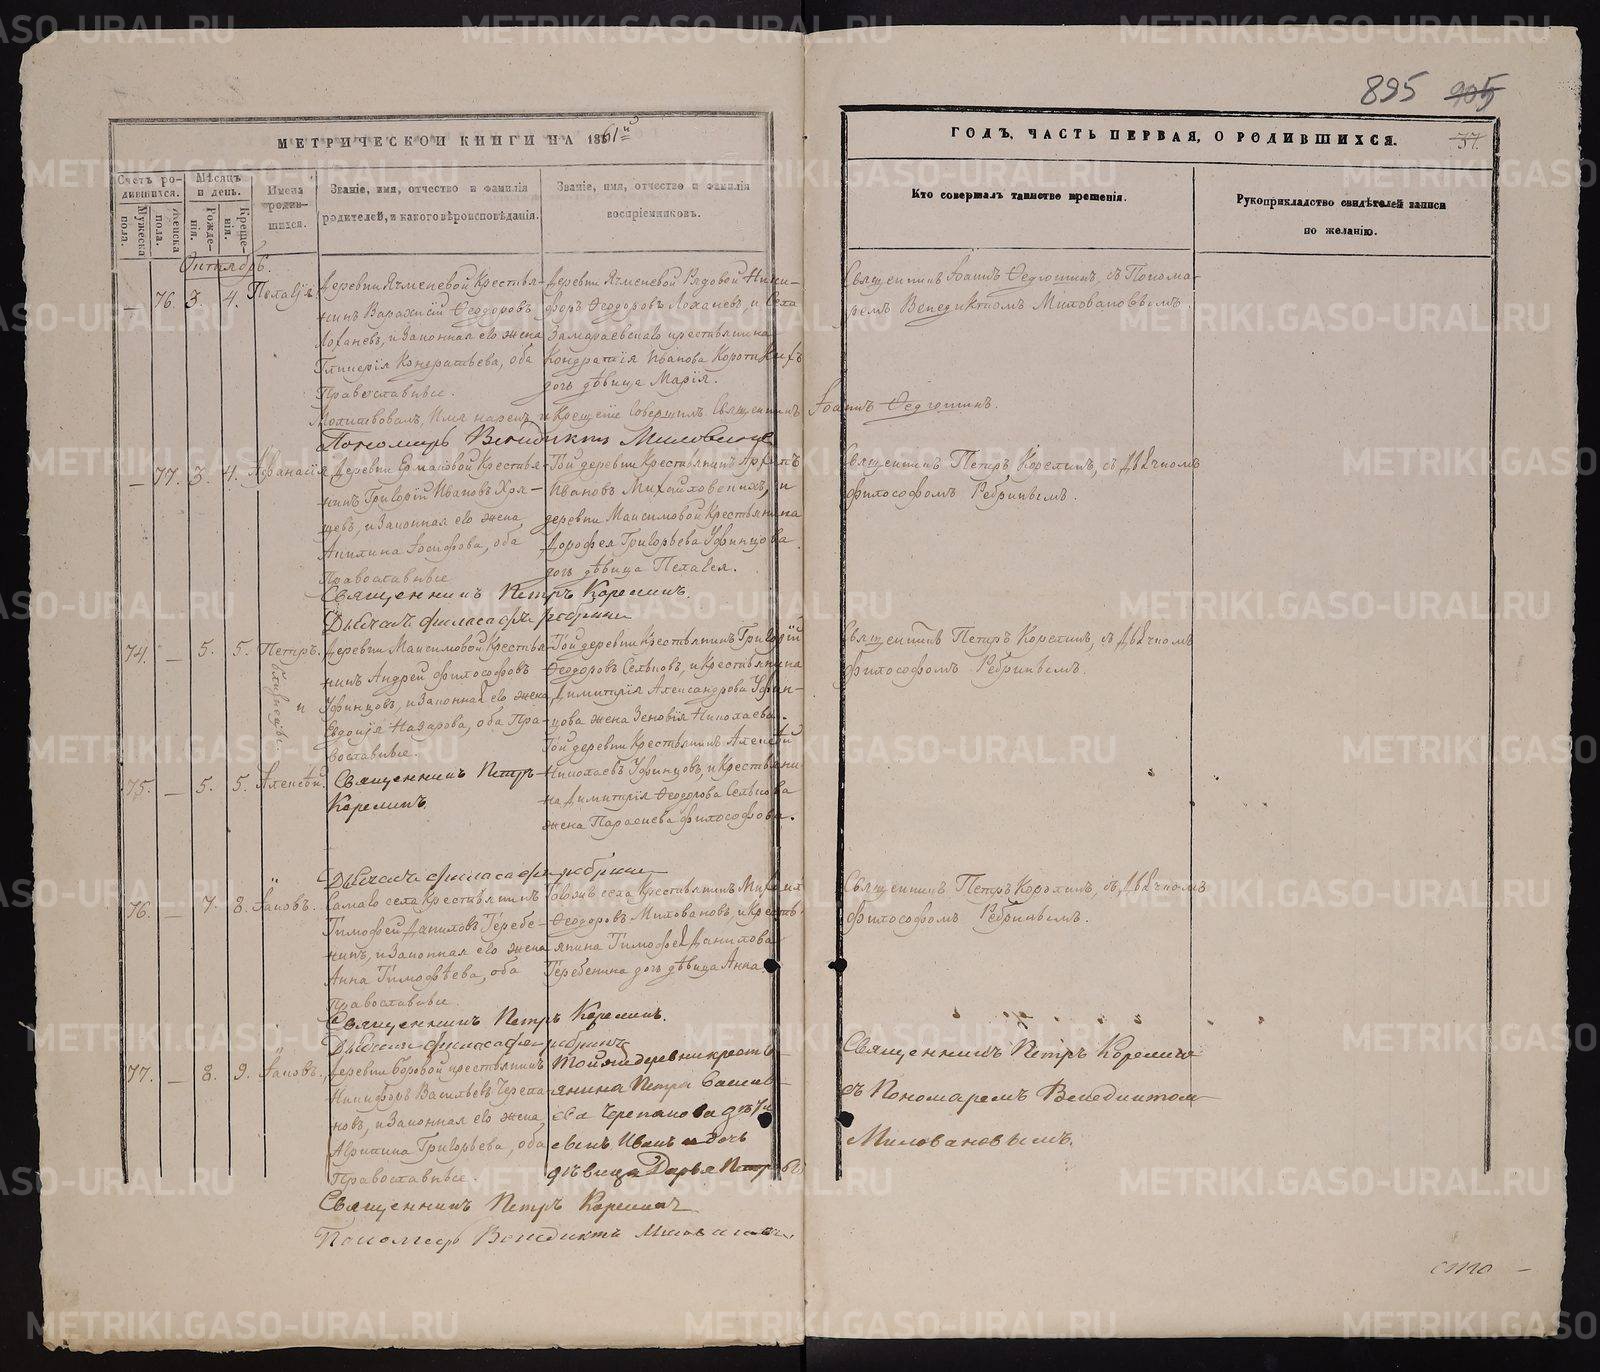 895 905
МЕТРИЧЕСКОЙ КНИГИ НА 1861й
ГОДЪ, ЧАСТЬ ПЕРВАЯ, О РОДИВШИХСЯ.
37.
Счетъ родившихся.
Мужеска пола.
Женска пола.
Мѣсяцъ и день.
Рожденія.
Крещенія.
Имена родившихся.
Званіе, имя, отчество и фамилія
родителей, и какого вѣроисповѣданія.
Званіе, имя, отчество и фамилія
воспріемниковъ.
Кто совершалъ таинство крещенія.
Рукоприкладство свидѣтелей записи
по желанію.
Октябрь.
— 76. 3. 4. Пелагія
Деревни Ячменевой Крестья-
нинъ Варахисій Ѳеодоровъ
Лоханевъ, и Законная его жена
Гликерія Кондратьева, оба
Православные.
Деревни Ячменевой Рядовой Ники-
форъ Ѳеодоровъ Лоханевъ, и Села
Замараевскаго крестьянина
Кондратія Иванова Коротких
дочь дѣвица Марія.
Священникъ Іоаннъ Ѳедюшинъ, съ Понома-
ремъ Венедиктомъ Миловановымъ.
Молитвовалъ, Имя нарекъ и Крещеніе Совершилъ Священникъ Іоаннъ Ѳедюшинъ.
Пономарь Венедиктъ Миловановъ
— 77. 3. 4. Афанасія
Деревни Ермаковой Крестья-
нинъ Григорій Ивановъ Хря-
щевъ, и Законная его жена
Акилина Іосифова, оба
Православные
Той деревни Крестьянинъ
Ивановъ Михайловскихъ, и
деревни Максимовой Крестьянина
Дорофея Григорьева Уфинцова
дочь дѣвица Пелагея.
Священникъ Петръ Корелинъ, съ Дьячкомъ
философомъ Ребринымъ.
Священникъ Петръ Корелинъ.
Дьячекъ филасафъ ребринъ
74. — 5. 5. Петръ.
и
Деревни Максимовой Крестья-
нинъ Андрей Философовъ
Уфинцовъ, и Законная его жена
Евдокія Назарова, оба Пра-
вославные.
Той деревни Крестьянинъ Григорій
Ѳеодоровъ Сельновъ, и Крестьянина
Димитрія Александрова Уфин-
цова жена Зеновія Николаева.
Священникъ Петръ Корелинъ, съ Дьячкомъ
философомъ Ребринымъ.
75. — 5. 5. Алексѣй
Священникъ Петръ
Корелинъ
Той деревни Крестьянинъ Алексѣй
Николаевъ Уфинцовъ, и Крестьяни-
на Димитрія Ѳеодорова Сельнова
жена Параскева философова.
Дьячекъ филасафъ ребринъ
76. — 7. 8. Іаковъ.
Самаго села Крестьянинъ
Тимофей Даниловъ Теребе-
нинъ, и Законная его жена
Анна Тимофѣева, оба
Православные.
Тогоже села Крестьянинъ Михаилъ
Ѳеодоровъ Миловановъ, и Кресть-
янина Тимофея Данилова
Теребенина дочь дѣвица Анна
Священникъ Петръ Корелинъ, съ Дьячкомъ
философомъ Ребринымъ.
Священникъ Петръ Корелинъ.
Дьячекъ филасафъ ребринъ
77. — 8. 9. Іаковъ.
Деревни Боровой крестьянинъ
Никифоръ Васильевъ Черепа-
новъ, и Законная его жена
Агрипина Григорьева, оба
Православные.
Тойже деревни кресть-
янина Петра Василь-
ева Черепанова дѣти
сынъ Иванъ и дочь
дѣвица Дарья Петровы
Священникъ Петръ Корелинъ
съ Пономаремъ Венедиктомъ
Миловановымъ.
Священникъ Петръ Корелинъ
Пономарь Венедиктъ Миловановъ